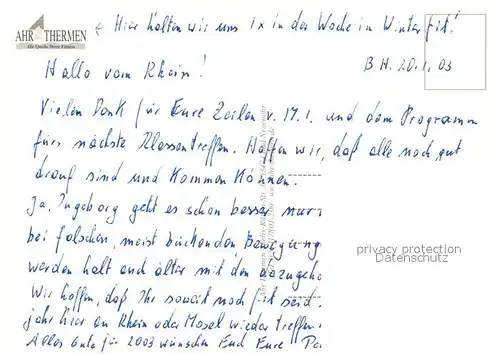 AHR THERMEN
Die Quelle Ihrer Fitness
← Hier halten wir uns 1x in der Woche im Winter fit!
B.H. 20.1.03
Hallo vom Rhein!
Vielen Dank für Eure Zeilen v. 17.1. und dem Programm
fürs nächste Klassentreffen. Hoffen wir, daß alle noch gut
drauf sind und kommen können.
Ja, Ingeborg geht es schon besser nur
bei falschen, meist bückenden Bewegung
werden halt auch älter mit den dazugehö
Wir hoffen, daß Ihr soweit noch fit seid.
jahr hier an Rhein oder Mosel wieder treffen
Alles Gute für 2003 wünschen Euch Eure
privacy protection
Datenschutz